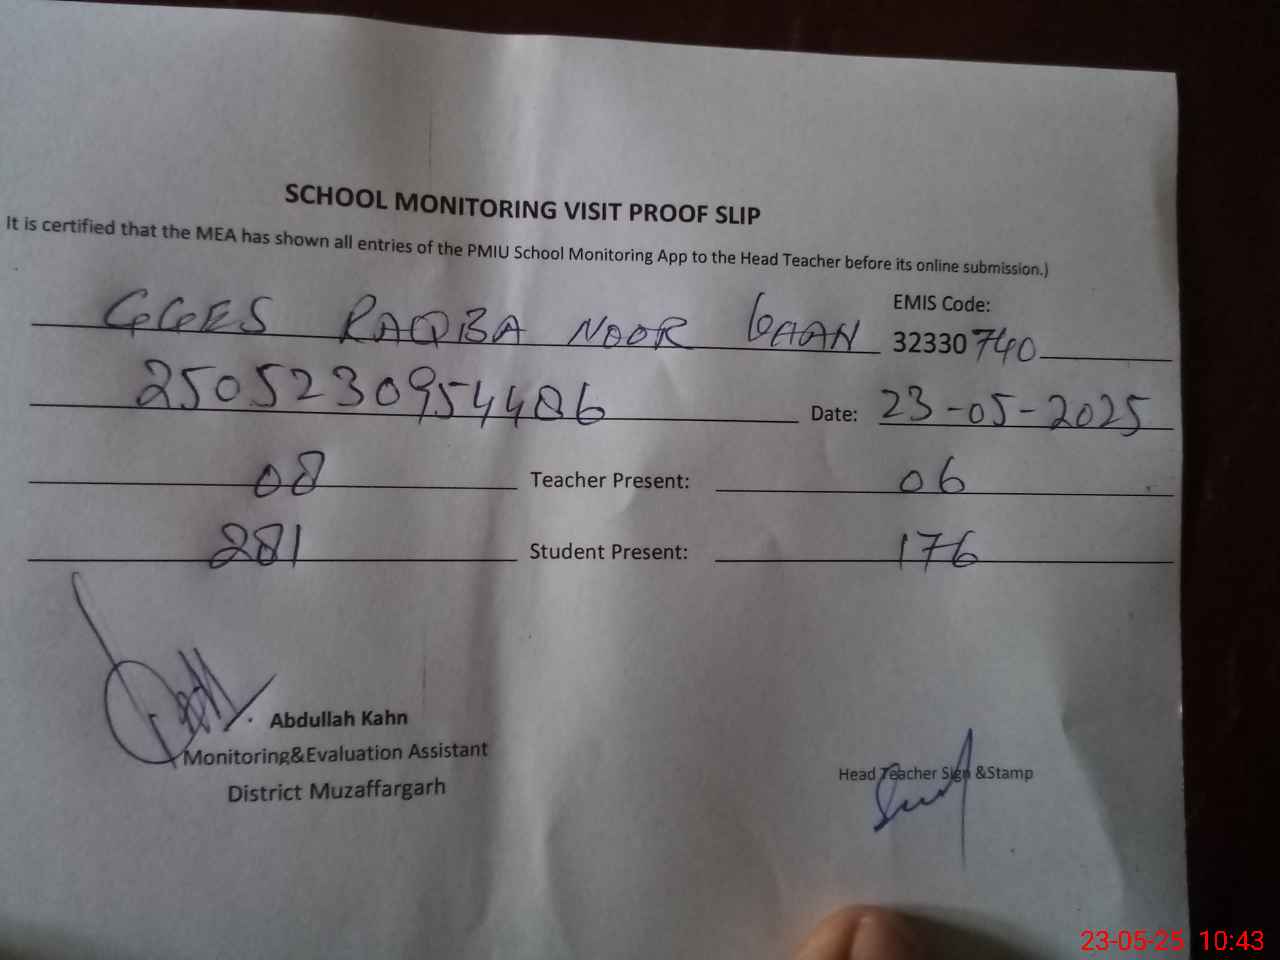 SCHOOL MONITORING VISIT PROOF SLIP
It is certified that the MEA has shown all entries of the PMIU School Monitoring App to the Head Teacher before its online submission.)
GGES RAQBA NOOR GAAN EMIS Code: 32330740
Date: 23-05-2025
08 Teacher Present: 06
281 Student Present: 176
Abdullah Kahn
Monitoring&Evaluation Assistant
District Muzaffargarh
Head Teacher Sign &Stamp
23-05-25 10:43